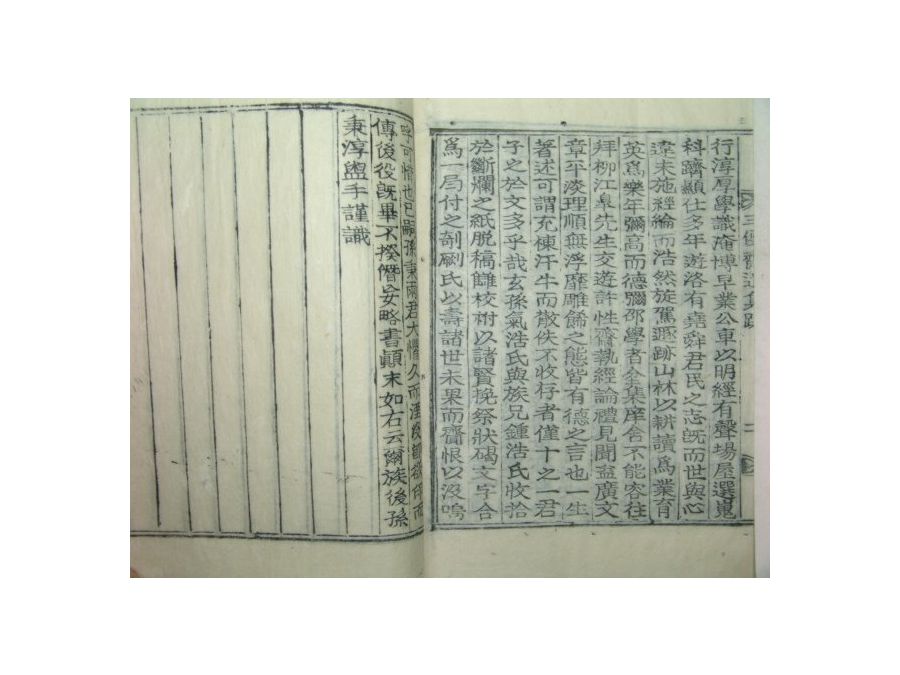 行淳厚學識淹博早業公車以明經有聲場屋選嵬
科躋顯仕多年遊洛有堯舜君民之志旣而世與心
違未施經綸而浩然旋駕遯跡山林以耕讀爲業育
英爲樂年彌高而德彌邵學者全集庠舍不能容往
拜柳江皐先生交遊許性齋執經論禮見聞益廣文
章平淡理順無浮靡雕餙之態皆有德之言也一生
著述可謂充棟汗牛而散佚不收存者僅十之一君
子之於文多乎哉玄孫氣浩氏與族兄鍾浩氏收拾
於斷爛之紙脫稿讎校附以諸賢挽祭狀碣文字合
爲一局付之剞劂氏以壽諸世未果而齎恨以沒嗚
呼可惜也已嗣孫秉雨君大懼久而湮沒鋟梓而
傳後役旣畢不揆僭妄略書顚末如右云爾族後孫
秉淳盥手謹識